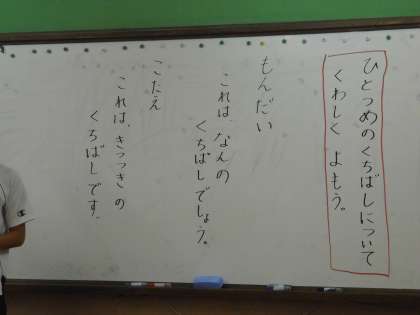 ひとつめのくちばしについて
くわしく よもう。
もんだい
これは なんの
くちばしでしょう。
こたえ
これは、きつつきの
くちばしです。